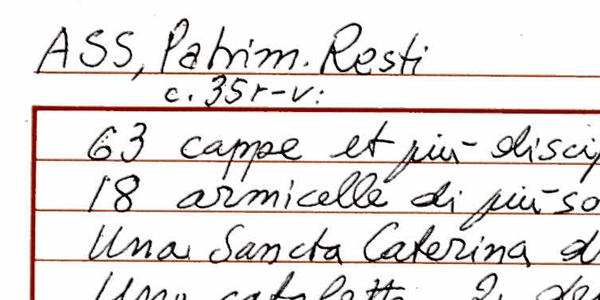 ASS, Patrim. Resti
c. 35r-v:
63 cappe et più discip
18 armicelle di più so
Una Sancta Caterina d
Uno cataletto